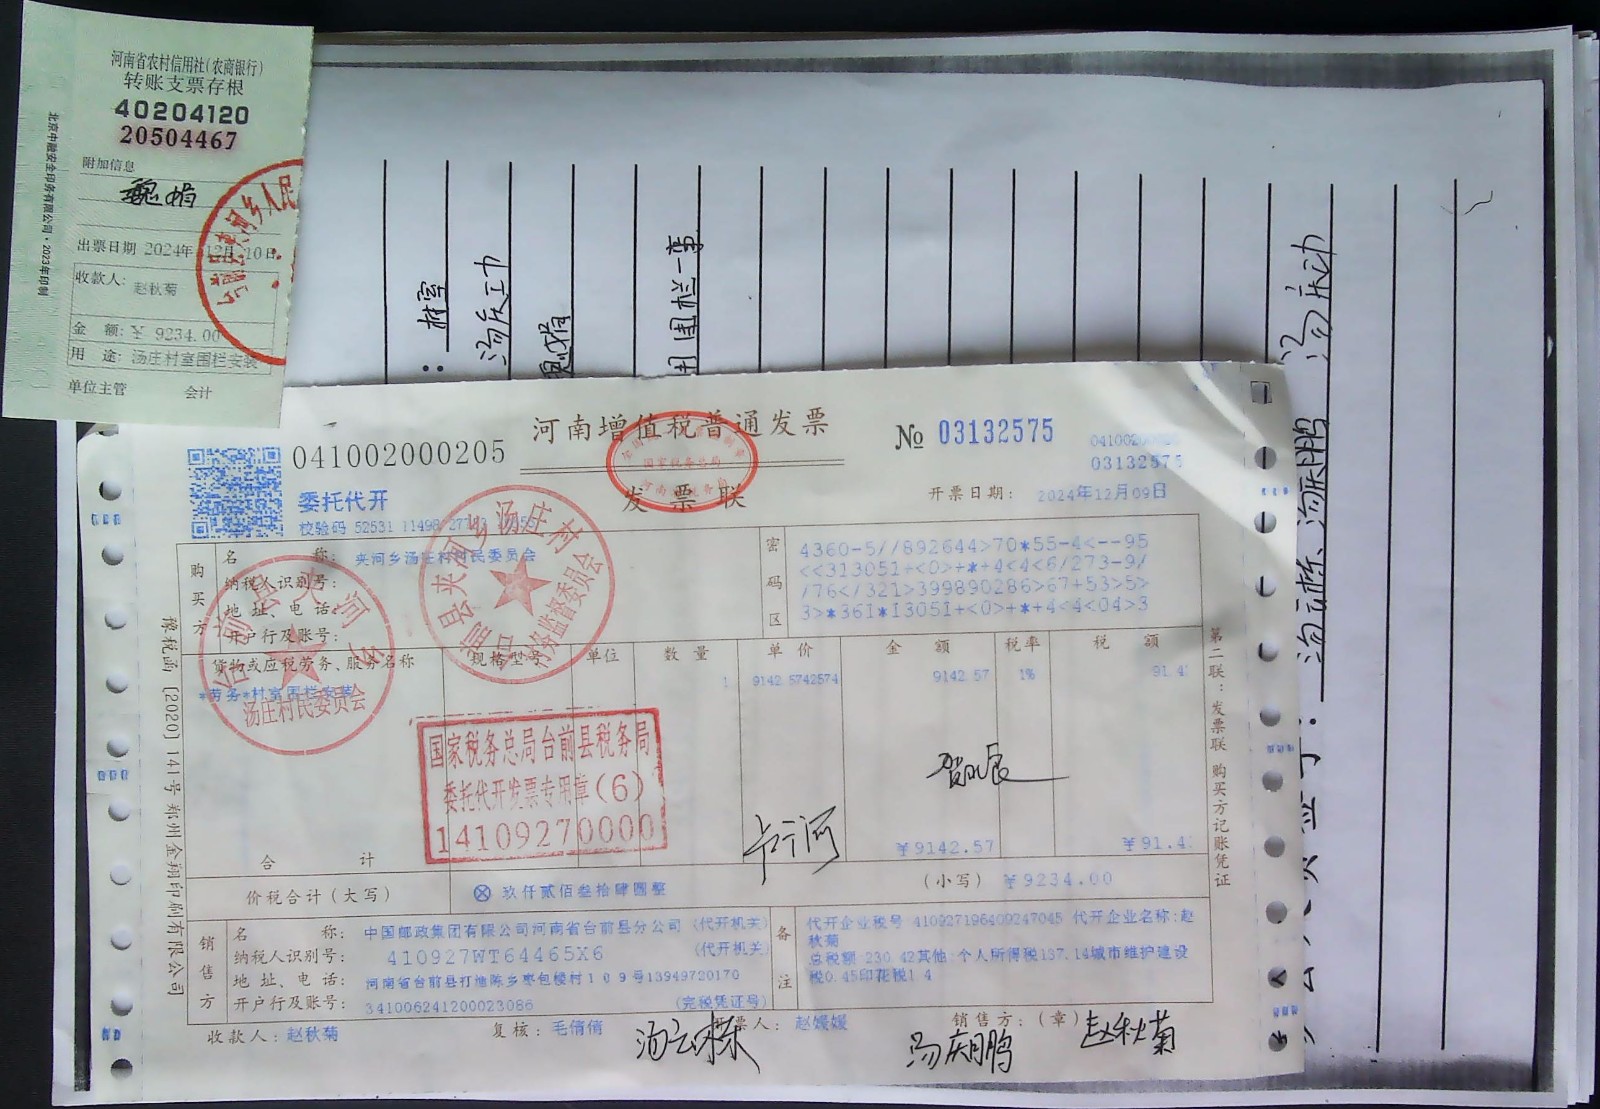 河南省农村信用社(农商银行)
转账支票存根
40204120
20504467
附加信息
魏娟
出票日期 2024年12月10日
收款人: 赵秋菊
金 额: ¥ 9234.00
用 途: 汤庄村室围栏安装
单位主管 会计
北京中融安全印务有限公司·2023年印制
041002000205
河南增值税普通发票
发票联
№ 03132575
03132575
委托代开
开票日期: 2024年12月09日
购买方
名 称: 夹河乡汤庄村村民委员会
纳税人识别号:
地 址、电 话:
开户行及账号:
密码区
4360-5//892644>70*55-4<--95
<<313051+<0>+*+4<4<6/273-9/
/76</321>399890286>67+53>5>
3>*361*13051+<0>+*+4<4<04>3
货物或应税劳务、服务名称 规格型号 单位 数 量 单 价 金 额 税率 税 额
*劳务*村室围栏安装 1 9142.5742574 9142.57 1% 91.4
国家税务总局台前县税务局
委托代开发票专用章(6)
14109270000
贺
合 计 ¥9142.57 ¥91.4
价税合计(大写) ⊗ 玖仟贰佰叁拾肆圆整 (小写) ¥9234.00
销售方
名 称: 中国邮政集团有限公司河南省台前县分公司 (代开机关)
纳税人识别号: 410927WT64465X6 (代开机关)
地 址、电 话: 河南省台前县打渔陈乡枣包楼村109号13949720170
开户行及账号: 341006241200023086 (完税凭证号)
备注
代开企业税号 410927196409247045 代开企业名称:赵
秋菊
总税额 230.42其他:个人所得税137.14城市维护建设
税0.45印花税1.4
收款人: 赵秋菊 复核: 毛倩倩 开票人: 赵媛媛 销售方:(章)
汤云栋 汤庆鹏 赵秋菊
豫税函〔2020〕141号郑州金翔印刷有限公司
第二联:发票联 购买方记账凭证
汤庄村
村务监督委员会
汤庄村民委员会
村室
用围栏一事
汤云栋、汤庆鹏